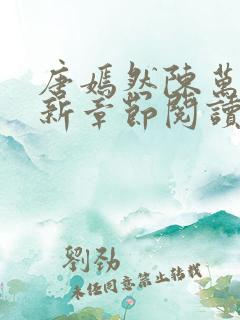 唐嫣然陳萬
新章節閱讀
劉勁
未經同意禁止轉載